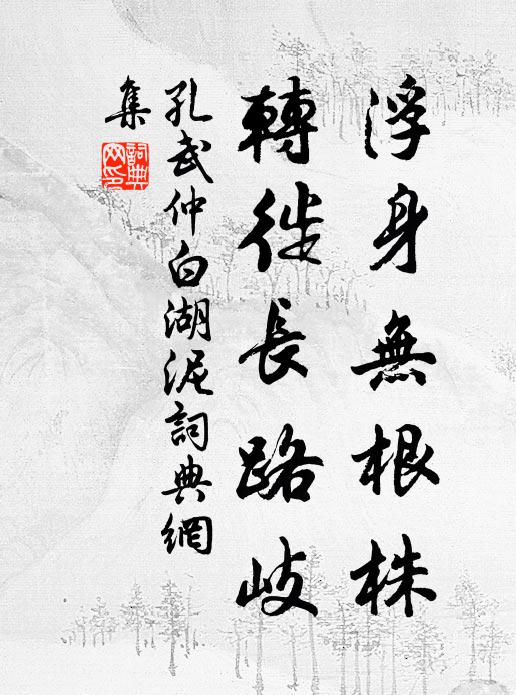 浮身無根株
轉徙長路岐
孔武仲白湖泥詞典網
集
詞典网印